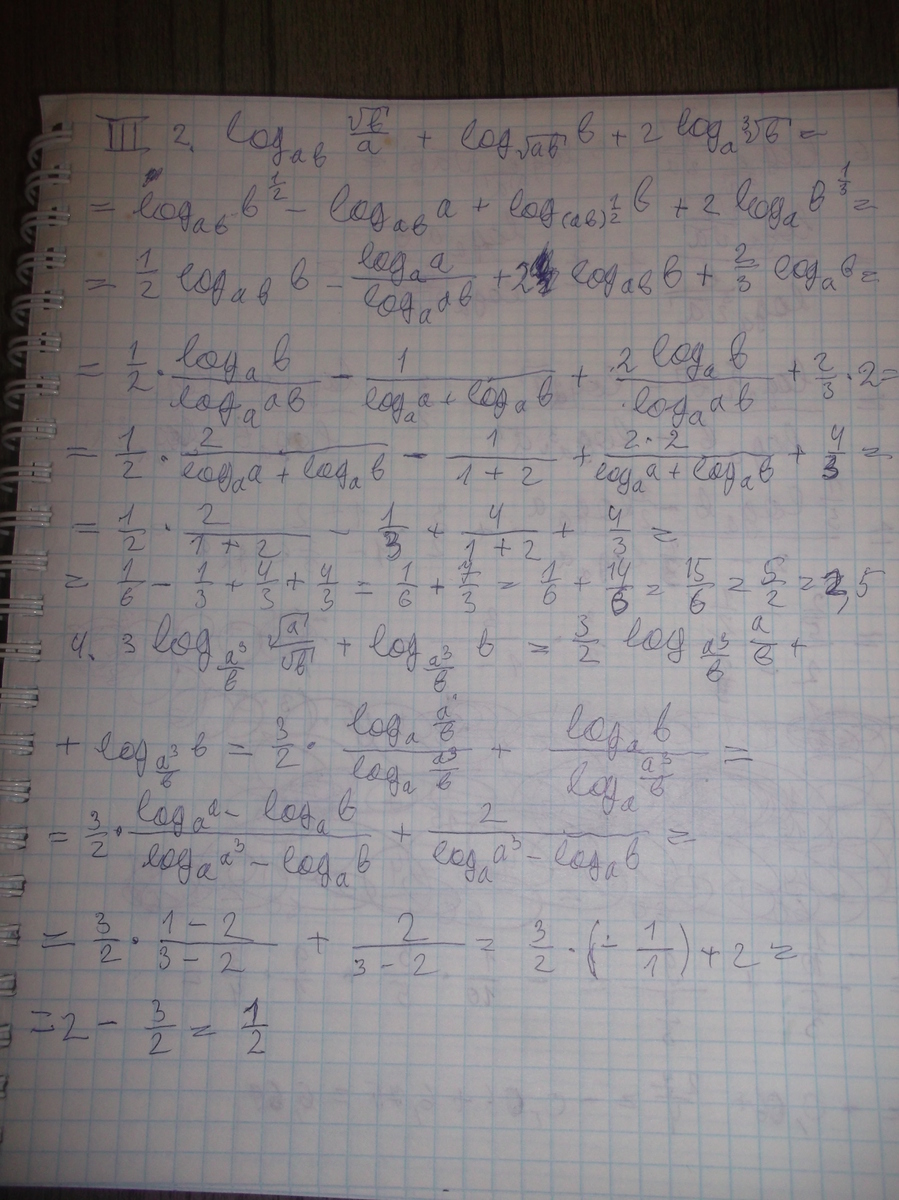 III 2. log_{ab} √b/a + log_{√ab} b + 2 log_a ∛b =
= log_{ab} b^{1/2} − log_{ab} a + log_{(ab)^{1/2}} b + 2 log_a b^{1/3} =
= 1/2 log_{ab} b − (log_a a)/(log_a ab) + 2 log_{ab} b + 2/3 log_a b =
= 1/2 · (log_a b)/(log_a ab) − 1/(log_a a + log_a b) + (2 log_a b)/(log_a ab) + 2/3 · 2 =
= 1/2 · 2/(log_a a + log_a b) − 1/(1 + 2) + (2 · 2)/(log_a a + log_a b) + 4/3 =
= 1/2 · 2/(1 + 2) − 1/3 + 4/(1 + 2) + 4/3 =
= 1/6 − 1/3 + 4/3 + 4/3 = 1/6 + 7/3 = 1/6 + 14/6 = 15/6 = 5/2 = 2,5
4. 3 log_{a³/b} √a/√b + log_{a³/b} b = 3/2 log_{a³/b} a/b +
+ log_{a³/b} b = 3/2 · (log_a a/b)/(log_a a³/b) + (log_a b)/(log_a a³/b) =
= 3/2 · (log_a a − log_a b)/(log_a a³ − log_a b) + 2/(log_a a³ − log_a b) =
= 3/2 · (1 − 2)/(3 − 2) + 2/(3 − 2) = 3/2 · (− 1/1) + 2 =
= 2 − 3/2 = 1/2